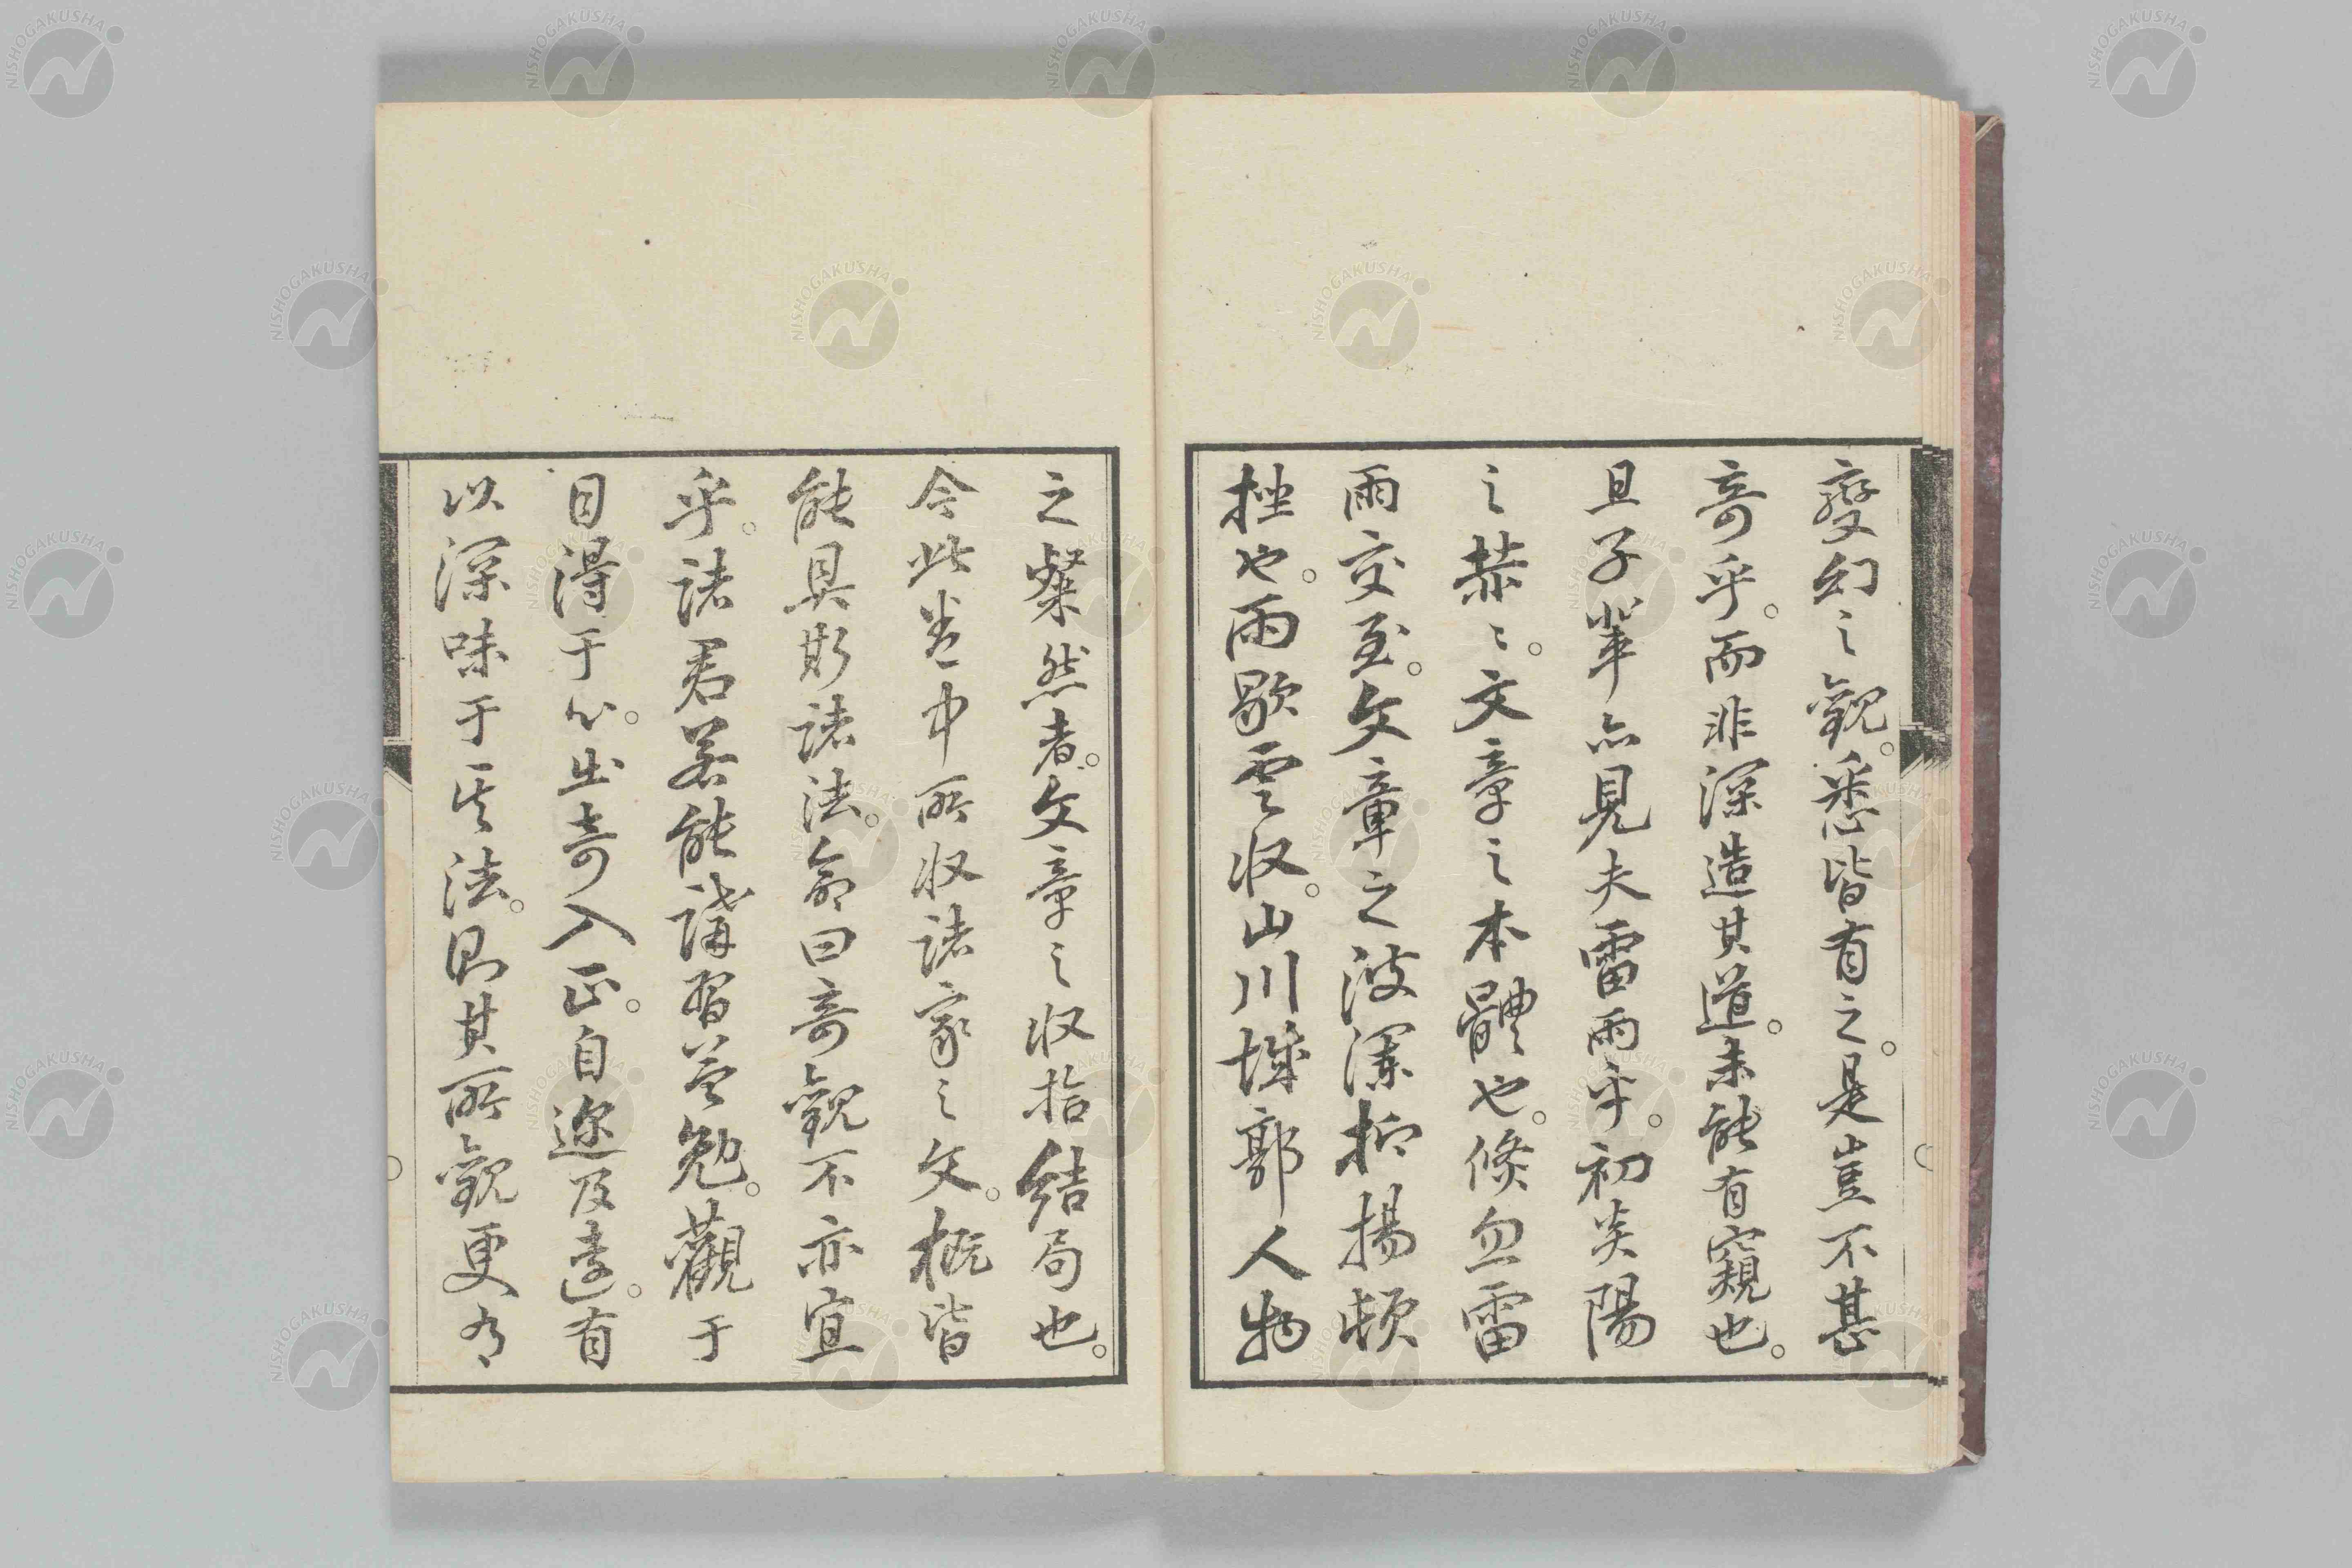 變幻之觀。悉皆有之。是豈不甚
奇乎。而非深造其道。未能有窺也。
且子輩亦見夫雷雨乎。初炎陽
之赫〻。文章之本體也。倏忽雷
雨交至。文章之波瀾抑揚頓
挫也。雨歇雲収。山川城郭人物
之粲然者。文章之収拾結局也。
今此卷中所収諸家之文。概皆
能具斯諸法。命曰奇觀不亦宜
乎。諸君若能講習益勉。觀于
目得于心。出奇入正。自邇及遠。有
以深味于其法。則其所觀更有
NISHOGAKUSHA